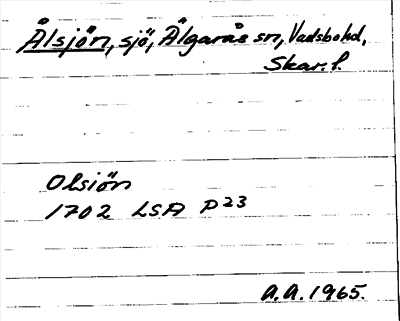 Ålsjön, sjö, Älgarås sn, Vadsbo hd,
Skar. l.
Olsiön
1702 LSA P23
A.A. 1965.